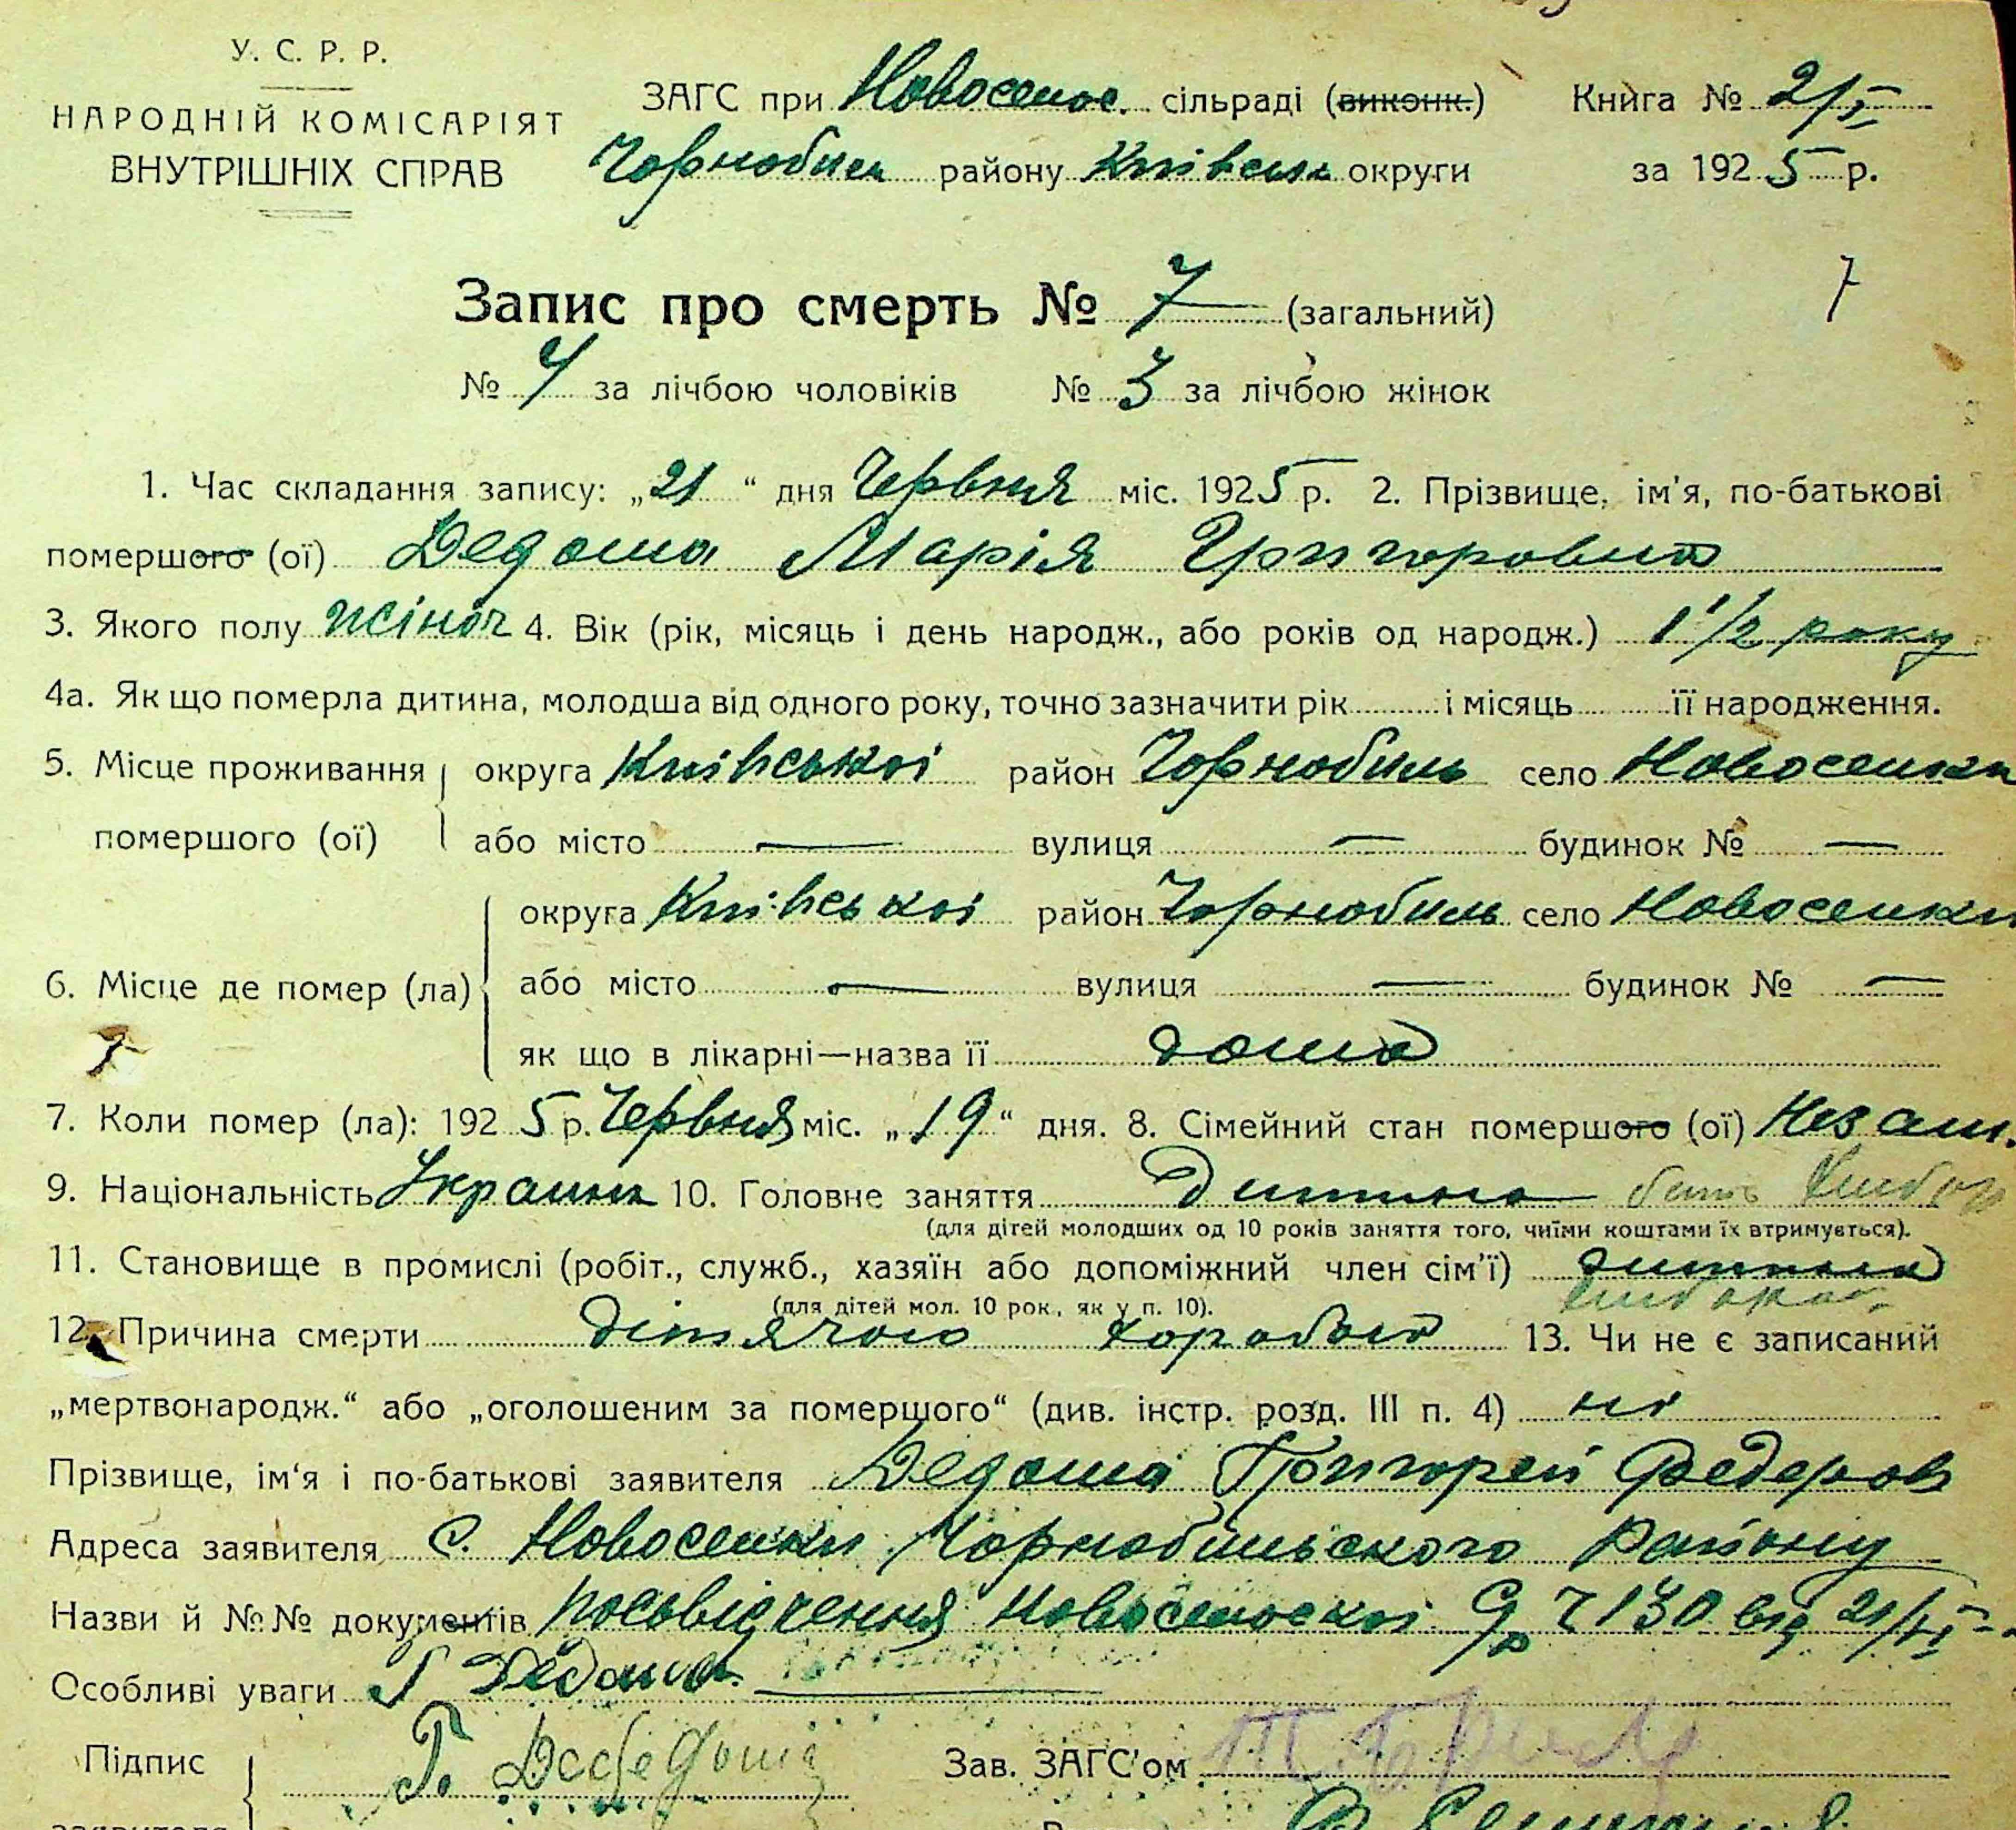 У. С. Р. Р.
НАРОДНІЙ КОМІСАРІЯТ
ВНУТРІШНІХ СПРАВ
ЗАГС при Новоселос. сільраді (виконк.)
Чорнобил району Київськ округи
Книга № 2/I
за 1925 р.
Запис про смерть № 7 (загальний)
7
№ 4 за лічбою чоловіків № 3 за лічбою жінок
1. Час складання запису: „21“ дня Червня міс. 1925 р. 2. Прізвище, ім'я, по-батькові
помершого (ої) Дедоша Марія Григоровна
3. Якого полу жіноч 4. Вік (рік, місяць і день народж., або років од народж.) 1 1/2 року
4а. Як що померла дитина, молодша від одного року, точно зазначити рік і місяць її народження.
5. Місце проживання помершого (ої)
округа Київської район Чорнобиль село Новоселки
або місто — вулиця — будинок № —
6. Місце де помер (ла)
округа Київської район Чорнобиль село Новоселки
або місто — вулиця — будинок № —
як що в лікарні—назва її дома
7. Коли помер (ла): 1925 р. Червня міс. „19“ дня. 8. Сімейний стан помершого (ої) Незам.
9. Національність Украинк 10. Головне заняття Дитина
(для дітей молодших од 10 років заняття того, чиїми коштами їх втримується).
11. Становище в промислі (робіт., служб., хазяїн або допоміжний член сім'ї) дитина
(для дітей мол. 10 рок., як у п. 10).
12. Причина смерти дітячою хоробою 13. Чи не є записаний
„мертвонародж.“ або „оголошеним за помершого“ (див. інстр. розд. III п. 4) ні
Прізвище, ім'я і по-батькові заявителя Дедоша Григорей Федеров
Адреса заявителя с. Новоселки Чорнобильского Району
Назви й №№ документів посвідчення Новоселоскої
Ч 130 від 21/VI
Особливі уваги
Підпис
заявителя
Зав. ЗАГС'ом